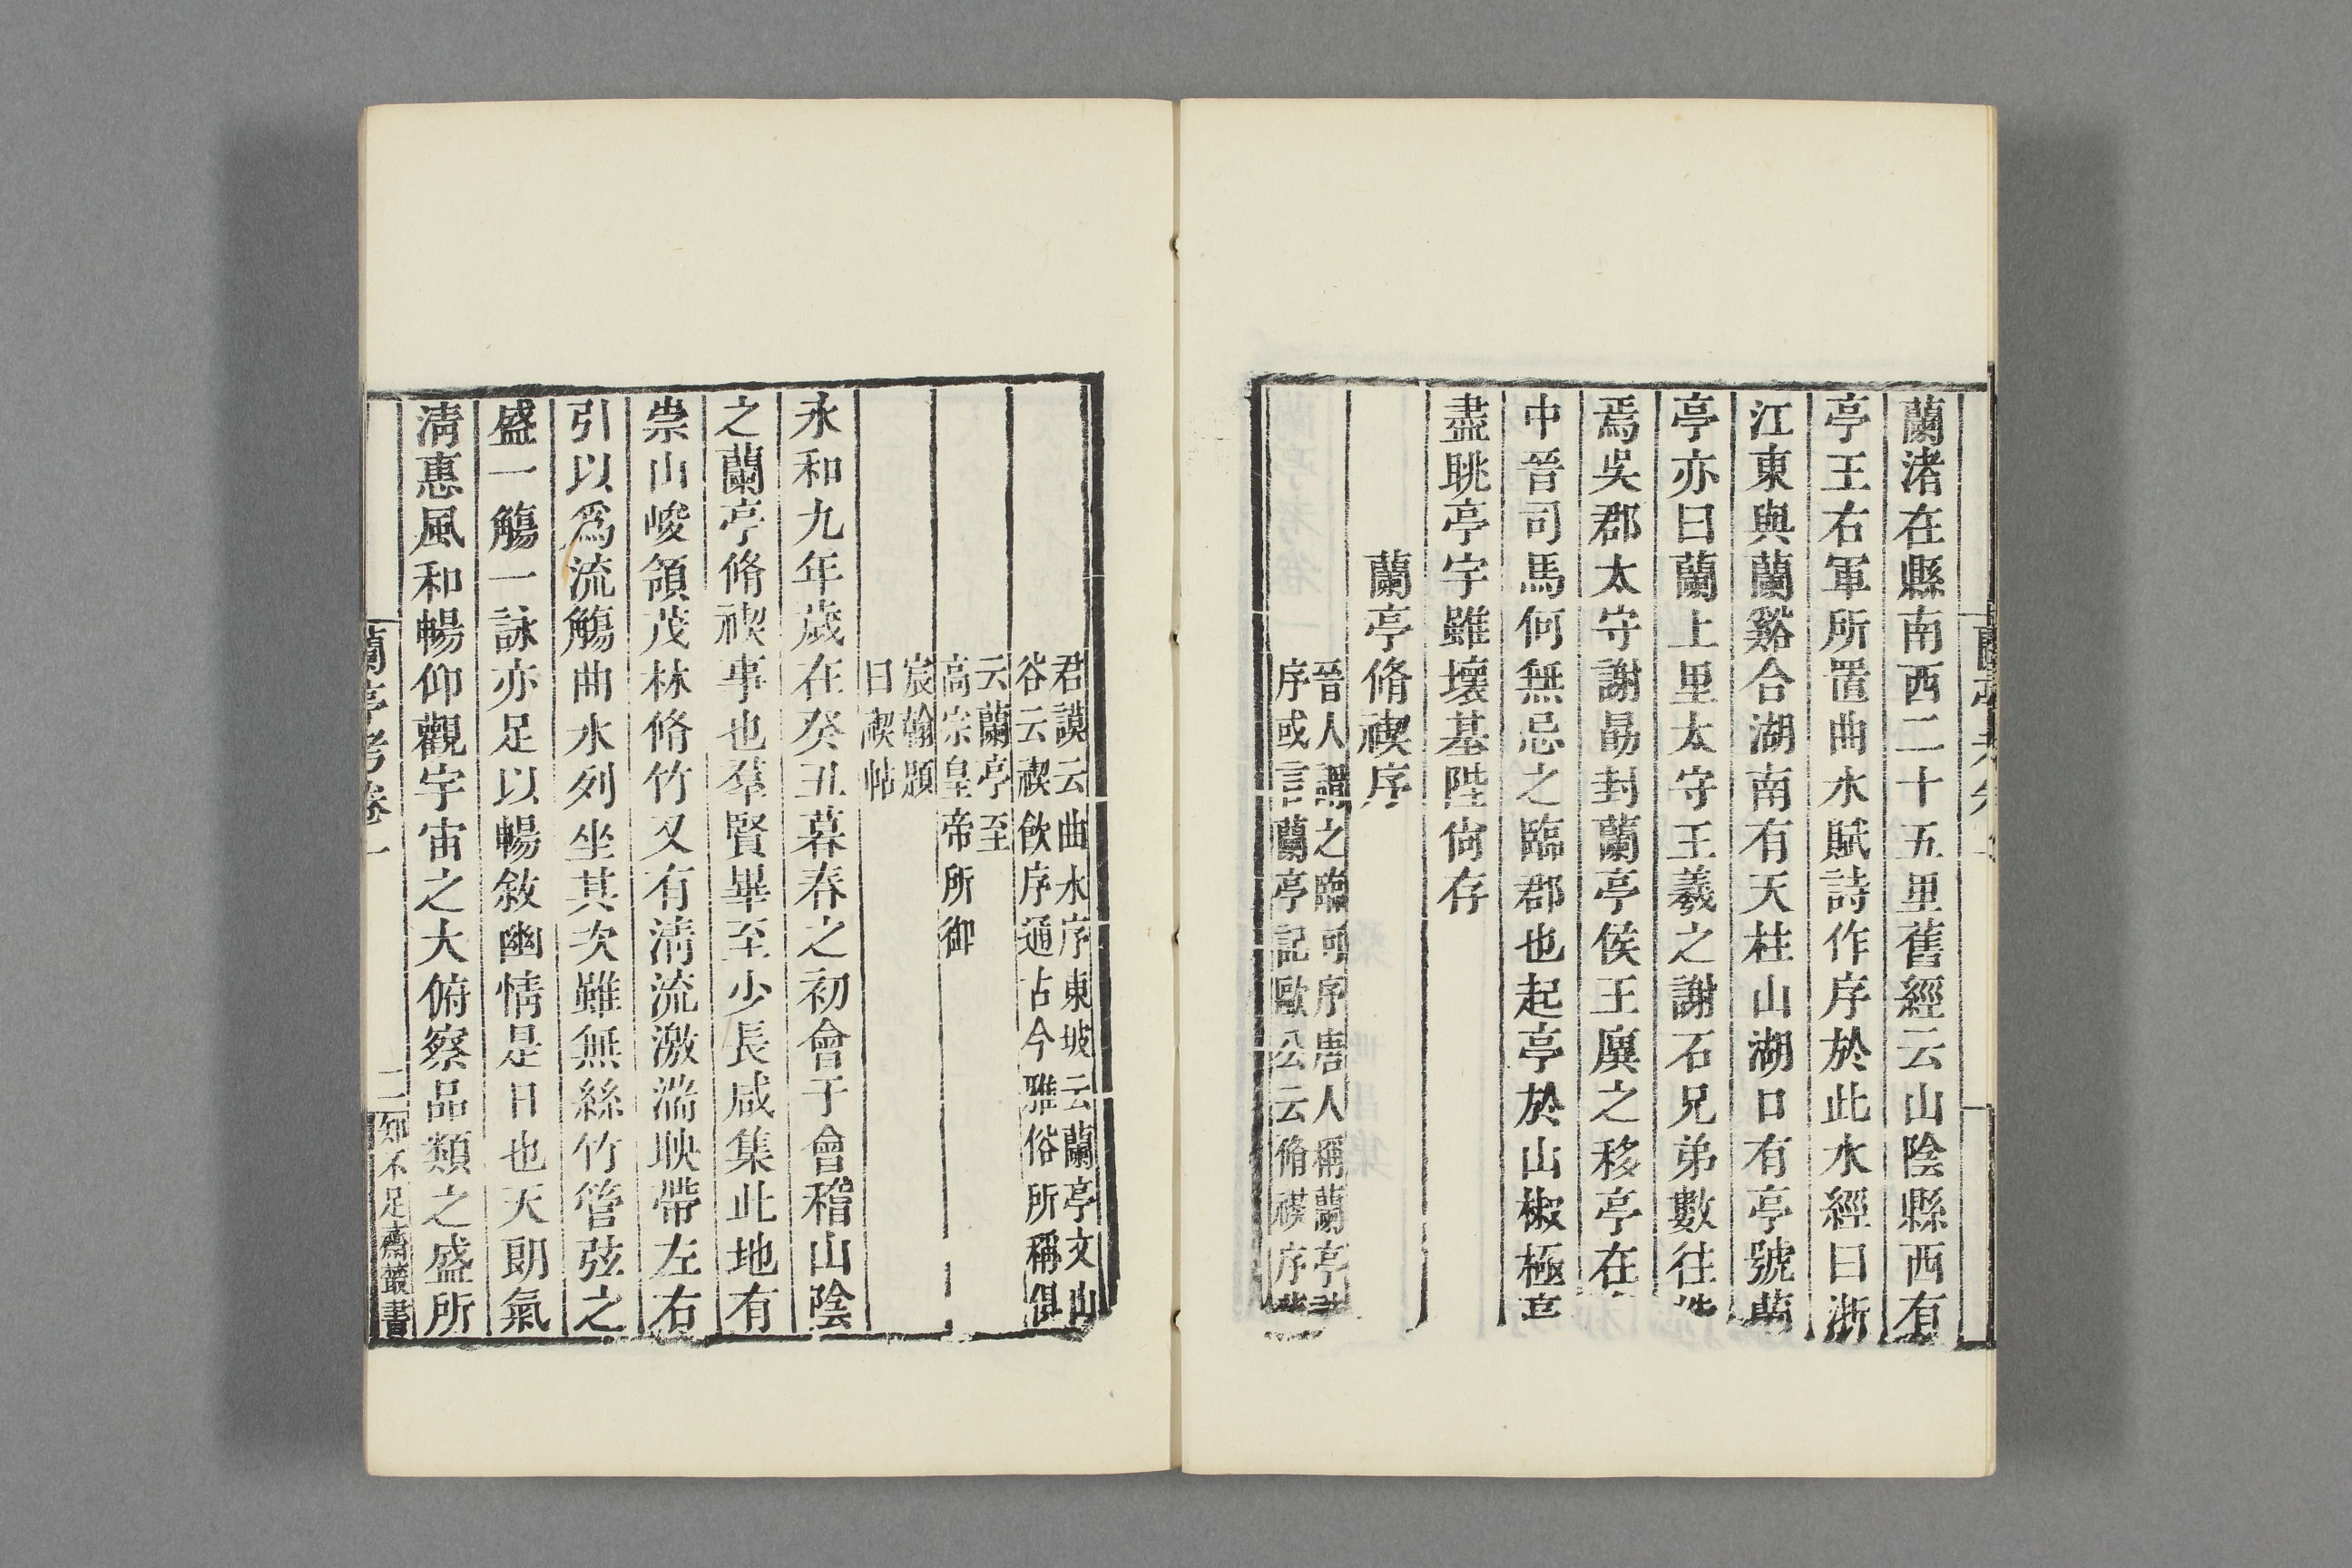 蘭渚在縣南西二十五里舊經云山陰縣西有
亭王右軍所置曲水賦詩作序於此水經曰浙
江東與蘭谿合湖南有天柱山湖口有亭號蘭
亭亦曰蘭上里太守王羲之謝石兄弟數往
焉吳郡太守謝勗封蘭亭侯王廙之移亭在
中晉司馬何無忌之臨郡也起亭於山椒極高
盡眺亭宇雖壞基陛尙存
蘭亭脩禊序
晉人謂之臨河序唐人稱蘭亭詩
序或言蘭亭記歐公云脩禊序蔡
君謨云曲水序東坡云蘭亭文山
谷云禊飲序通古今雅俗所稱俱
云蘭亭至
高宗皇帝所御
宸翰題
曰禊帖
永和九年歲在癸丑暮春之初會于會稽山陰
之蘭亭脩禊事也羣賢畢至少長咸集此地有
崇山峻領茂林脩竹又有清流激湍映帶左右
引以爲流觴曲水列坐其次雖無絲竹管弦之
盛一觴一詠亦足以暢敘幽情是日也天朗氣
清惠風和暢仰觀宇宙之大俯察品類之盛所
蘭亭考卷一
二
知不足齋叢書